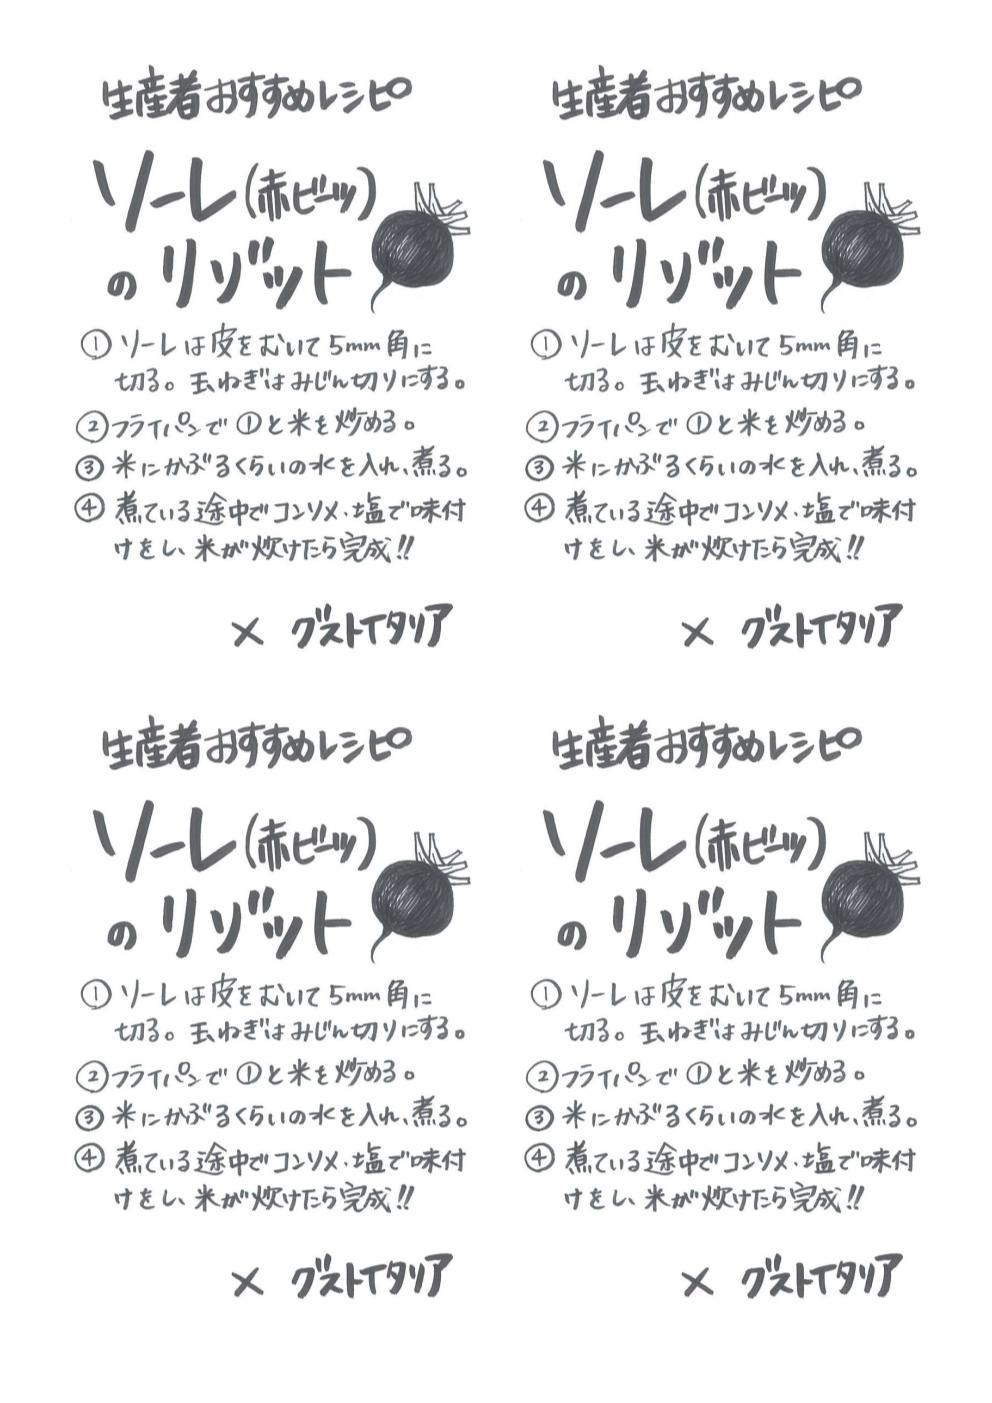 生産者おすすめレシピ
ソーレ(赤ビーツ)
のリゾット
① ソーレは皮をむいて5mm角に
切る。玉ねぎはみじん切りにする。
② フライパンで①と米を炒める。
③ 米にかぶるくらいの水を入れ、煮る。
④ 煮ている途中でコンソメ、塩で味付
けをし、米が炊けたら完成!!
× グストイタリア
生産者おすすめレシピ
ソーレ(赤ビーツ)
のリゾット
① ソーレは皮をむいて5mm角に
切る。玉ねぎはみじん切りにする。
② フライパンで①と米を炒める。
③ 米にかぶるくらいの水を入れ、煮る。
④ 煮ている途中でコンソメ、塩で味付
けをし、米が炊けたら完成!!
× グストイタリア
生産者おすすめレシピ
ソーレ(赤ビーツ)
のリゾット
① ソーレは皮をむいて5mm角に
切る。玉ねぎはみじん切りにする。
② フライパンで①と米を炒める。
③ 米にかぶるくらいの水を入れ、煮る。
④ 煮ている途中でコンソメ、塩で味付
けをし、米が炊けたら完成!!
× グストイタリア
生産者おすすめレシピ
ソーレ(赤ビーツ)
のリゾット
① ソーレは皮をむいて5mm角に
切る。玉ねぎはみじん切りにする。
② フライパンで①と米を炒める。
③ 米にかぶるくらいの水を入れ、煮る。
④ 煮ている途中でコンソメ、塩で味付
けをし、米が炊けたら完成!!
× グストイタリア